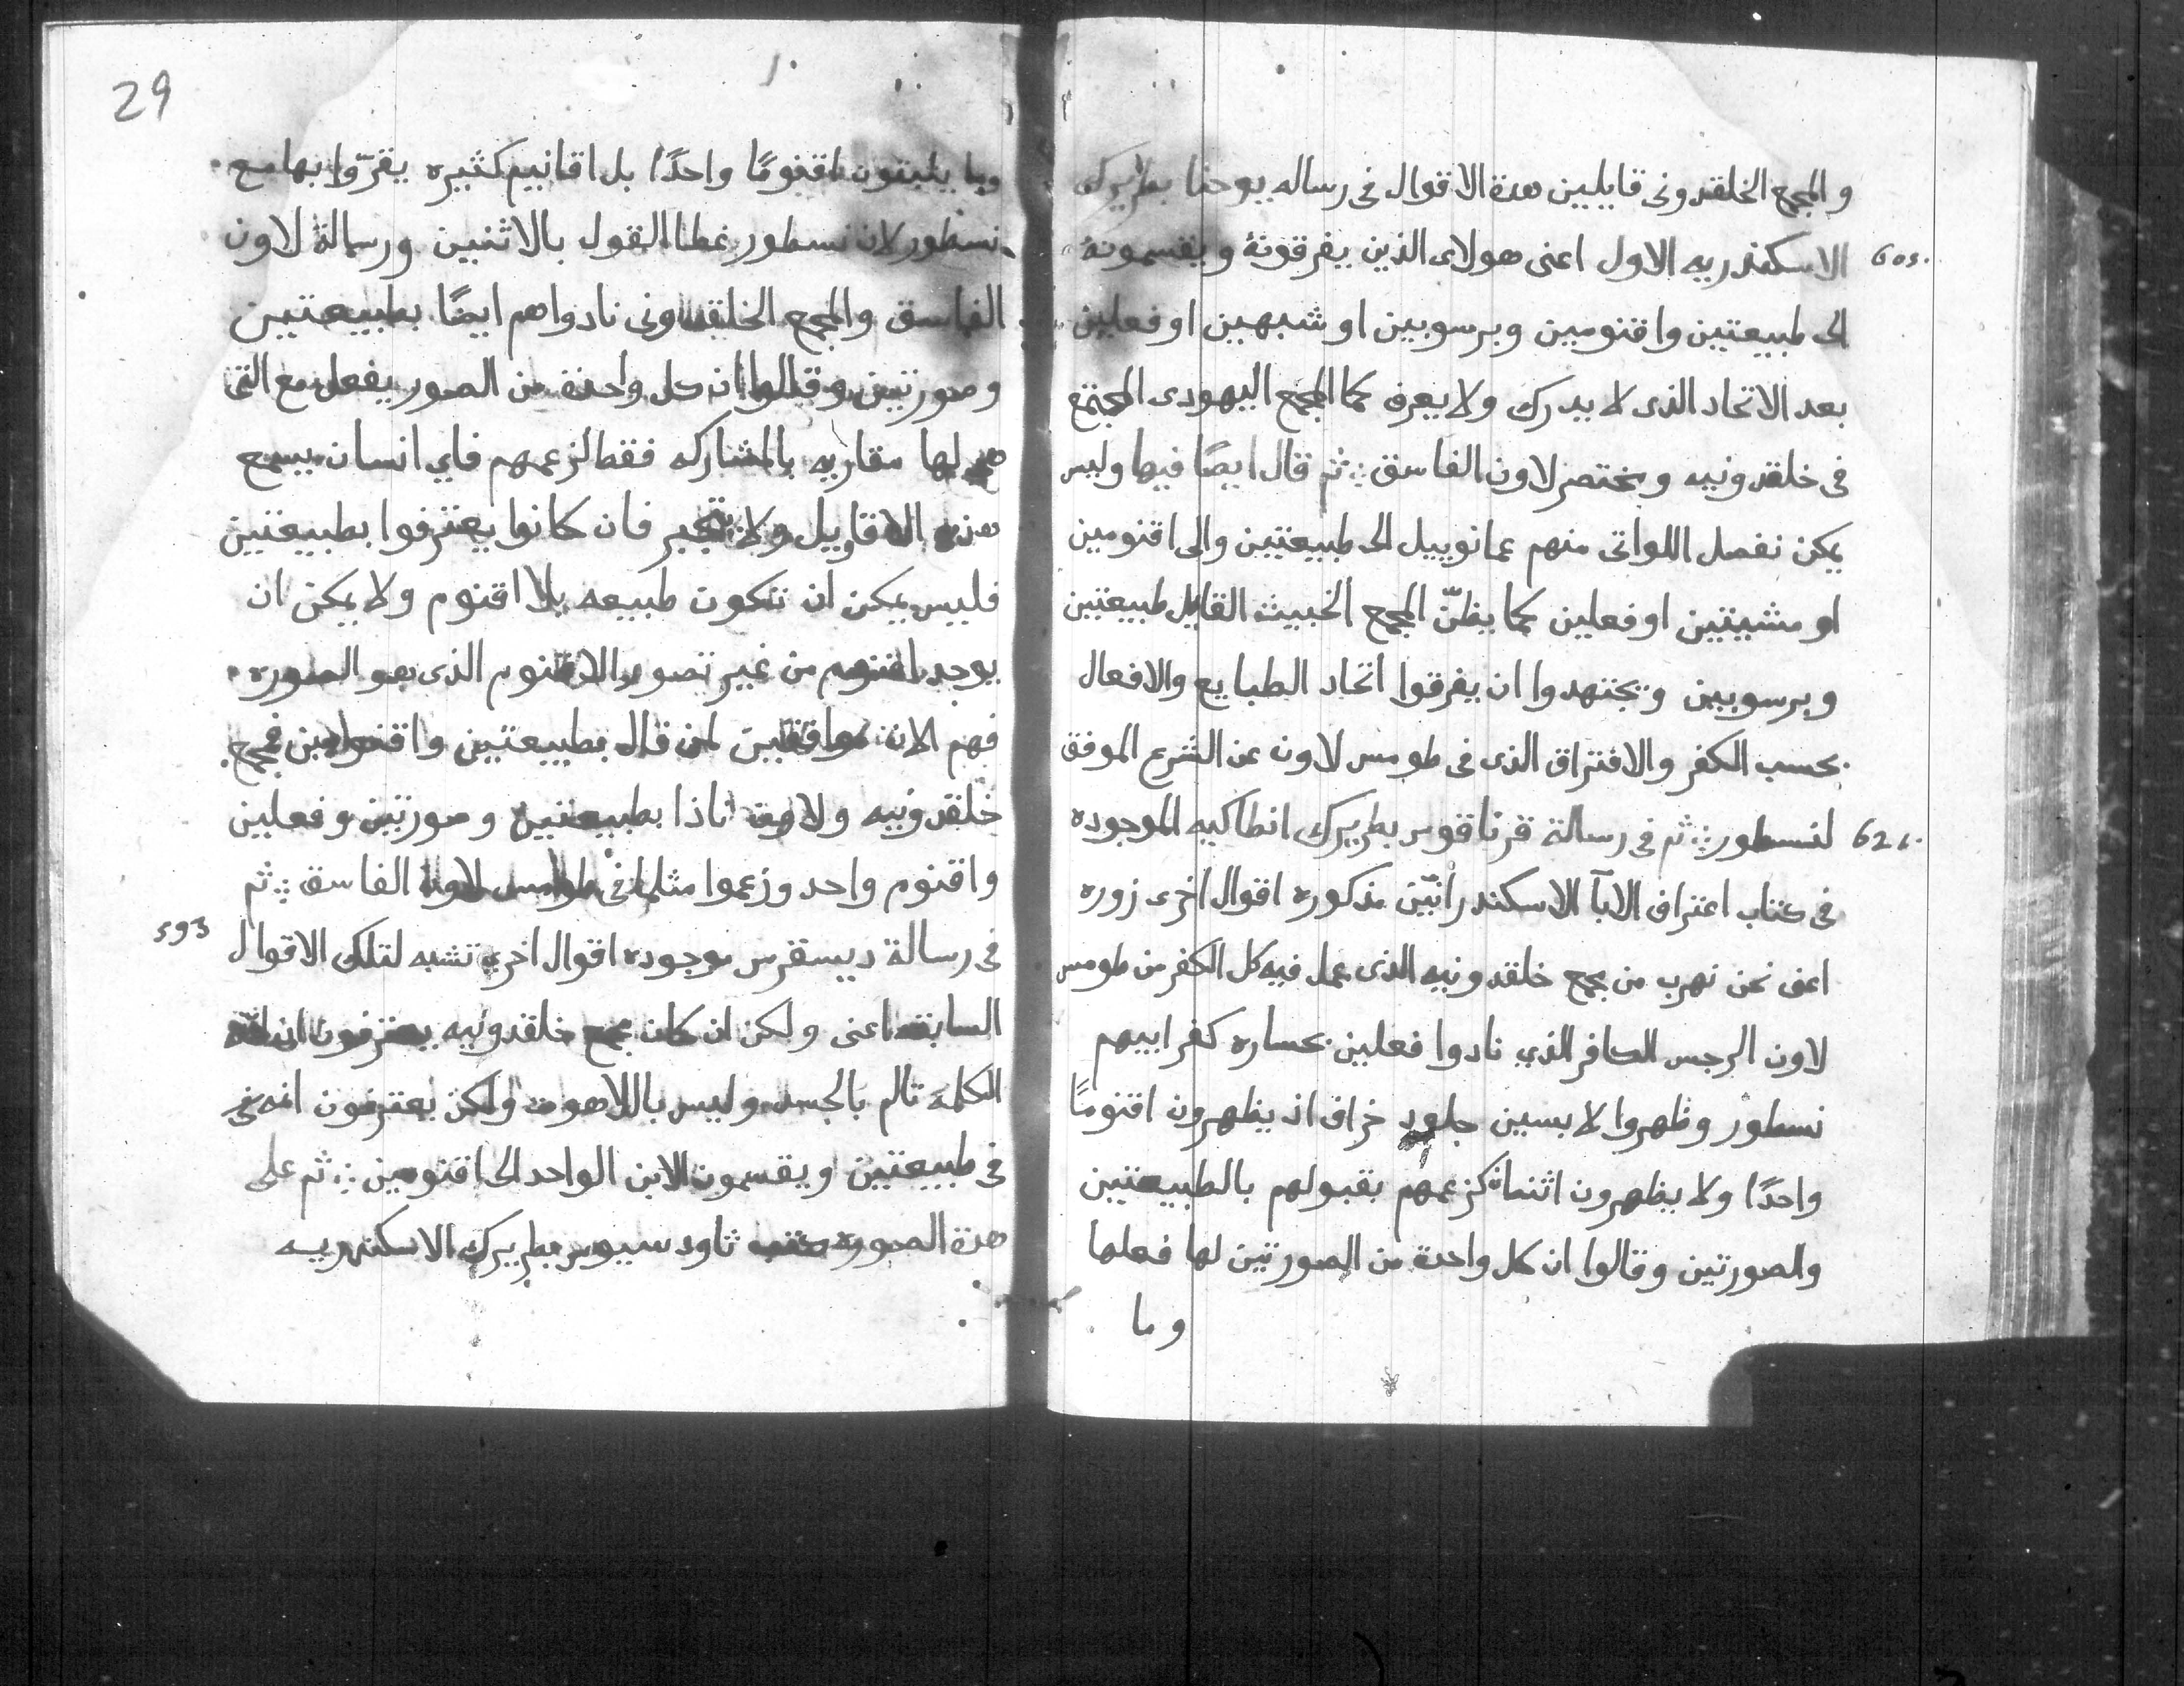 والمجمع الخلقدونى قايلين هدة الاقوال فى رساله يوحنا بطريرك
الاسكندريه الاول اعنى هولاى الذين يفرقونة ويقسمونة 605.
الى طبيعتين واقنومين وبرسوبين او شبهين او فعلين
بعد الاتحاد الذى لا يدرك ولا يعرف كما المجمع اليهودى المجتمع
فى خلقدونيه ويختصر لاون الفاسق ثم قال ايضًا فيها وليس
يمكن نفصل اللواتى منهم عمانوييل الى طبيعتين والى اقنومين
او مشيتين او فعلين كما يظنّ المجمع الخبيث القايل طبيعتين
وبرسوبين ويجتهدوا ان يفرقوا اتحاد الطبايع والافعال
بحسب الكفر والافتراق الذى فى طومس لاون عن الشرع الموفق
لنسطور ثم فى رسالة قرناقوس بطريرك انطاكيه الموجوده 621.
فى كتاب اعتراف الابآ الاسكندرانيّن مذكوره اقوال اخرى زوره
اعنى نحن نهرب من مجمع خلقدونيه الذى عمل فيه كل الكفر من طومس
لاون الرجس الكافر الذي نادوا فعلين بحساره كفر ابيهم
نسطور وظهروا لابسين جلود خراف اذ يظهرون اقنومًا
واحدًا ولا يظهرون اثنان كزعمهم بقبولهم بالطبيعتين
والصورتين وقالوا ان كل واحدة من الصورتين لها فعلها
وما
29
وما يثبتون اقنومًا واحدًا بل اقانيم كثيره يقرّوا بها مع
نسطور لان نسطور غطا القول بالاثنين ورسالة لاون
الفاسق والمجمع الخلقدونى نادواهم ايضًا بطبيعتين
وصورتين وقالوا ان كل واحدة من الصور يفعل مع التى
هى لها مقاربه بالمشاركه فقط لزعمهم فاي انسان يسمع
هذه الاقاويل ولا يتحير فان كانوا يعترفوا بطبيعتين
فليس يمكن ان تتكون طبيعه بلا اقنوم ولا يمكن ان
يوجد اقنوم من غير تصور الاقنوم الذى هو الصوره
فهم الان موافقين لمن قال بطبيعتين واقنومين فمجمع
خلقدونيه ولاون نادا بطبيعتين وصورتين وفعلين
واقنوم واحد وزعموا مثلما فى طومس لاون الفاسق ثم
فى رسالة ديسقرس موجوده اقوال اخرى تشبه لتلك الاقوال 593
السابقه اعنى ولكن ان كان مجمع خلقدونيه يعترفون ان الله
الكلمة تالم بالجسد وليس باللاهوت ولكن يعترفون انه فى
فى طبيعتين ويقسمون الابن الواحد الى اقنومين ثم على
هدة الصورة كتب تاودسيوس بطريرك الاسكندريه